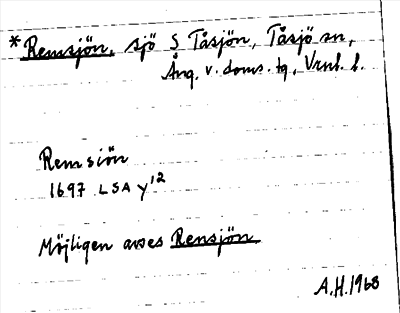 *Remsjön, sjö S Tåsjön, Tåsjö sn,
Ång. v. doms. tg, Vrnl. l.
Remsiön
1697 LSA y¹²
Möjligen avses Rensjön
A.H. 1968